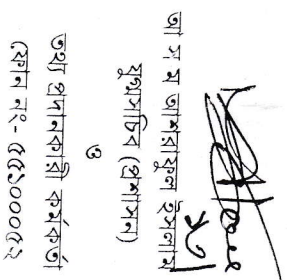 আ স ম আশরাফুল ইসলাম
যুগ্মসচিব (প্রশাসন)
ও
তথ্য প্রদানকারি কর্মকর্তা
ফোন নং- ৫৫১০০০৫২